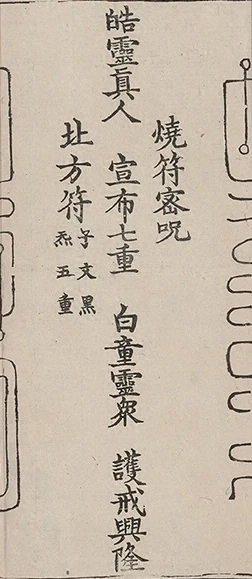 燒符密咒
皓靈眞人　宣布七重　白童靈衆　護戒興隆
北方符
子文黑
炁五重